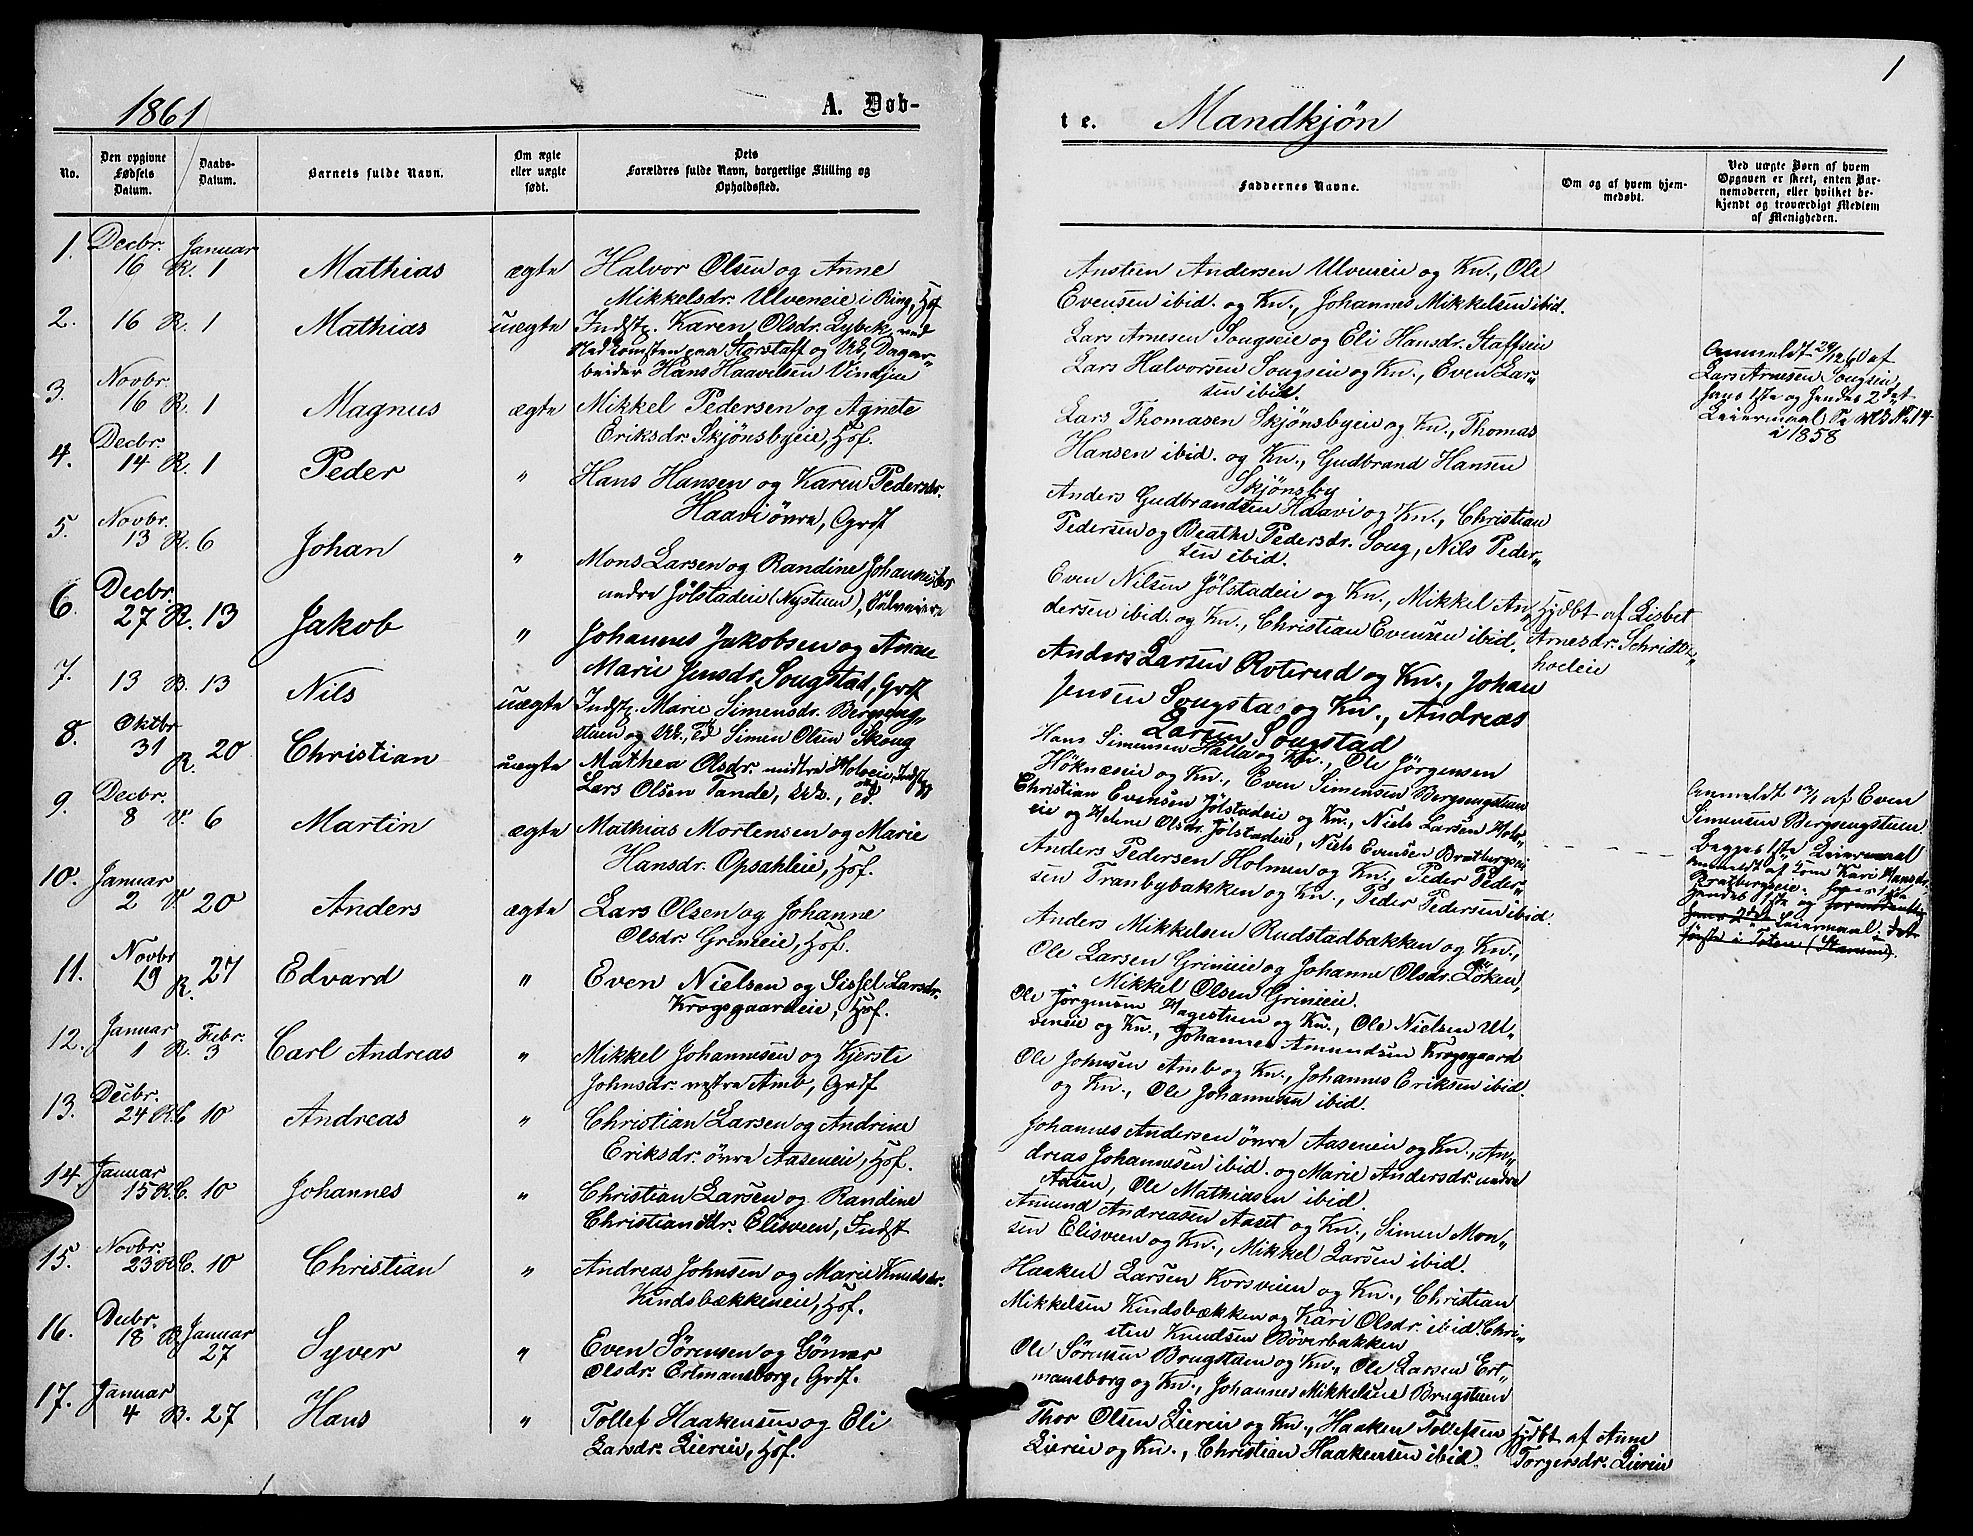 1861
A. Døb-
No.
Den opgivne Fødsels Datum.
Daabs-Datum.
Barnets fulde Navn.
Om ægte eller uægte født.
Dets Forældres fulde Navn, borgerlige Stilling og Opholdssted.
1. Decbr. 16 R. Januar 1 Mathias ægte Halvor Olsen og Anne
Mikkelsdr. Ulveneie i Ring, Hsf
2. 16 R. 1 Mathias uægte Indstp. Karen Olsdr. Lybek, ved
Nedkomsten paa Storstaff og Uk, Dagar-
beider Hans Haavelsen Vindju
3. Novbr. 16 R. 1 Magnus ægte Mikkel Pedersen og Agnete
Eriksdr. Skjønsbyeie, Hsf.
4. Decbr. 14 R. 1 Peder " Hans Hansen og Karen Pedersdr.
Haavi övre, Grdf
5. Novbr. 13 R. 6 Johan " Mons Larsen og Randine Johannesdr
nedre Jølstadeie (Nystuen),
6. Decbr. 27 R. 13 Jakob " Johannes Jakobsen og Anne
Marie Jensdr. Sougstad, Grdf
7. 13 B. 13 Nils uægte Indstp. Marie Simensdr. Bergseng-
stuen og Uk., Simen Olsen Skoug
8. Oktbr 31 R. 20 Christian uægte Mathea Olsdr. midtre Holseie, Indstp
Lars Olsen Tande, Uk.,
9. Decbr. 8 V. 6 Martin ægte Mathias Mortensen og Marie
Hansdr. Opsahleie, Hsf.
10. Januar 2 V. 20 Anders ægte Lars Olsen og Johanne
Olsdr. Grimeie, Hsf.
11. Novbr 19 R. 27 Edvard " Even Nielsen og Sissel Larsdr.
Krogsgaardeie, Hsf.
12. Januar 1 R. Febr. 3 Carl Andreas " Mikkel Johannesen og Kjerste
Johnsdr. vestre Amb, Grdf
13. Decbr. 24 R.C. 10 Andreas " Christian Larsen og Andrine
Eriksdr. övre Aaseneie, Hsf.
14. Januar 15 R.C. 10 Johannes " Christian Larsen og Randine
Christiansdr. Elisveen, Indst
15. Novbr. 23 R.C. 10 Christian " Andreas Johnsen og Marie Knudsdr.
Kindsbækkeneie, Hsf.
16. Decbr. 18 B. Januar 27 Syver " Even Sørensen og Gönner
Olsdr. Ertmansborg, Grdf.
17. Januar 4 B. 27 Hans " Tollef Haakensen og Eli
Larsdr. Liereie, Hsf.
1
te. Mandkjøn
Faddernes Navne.
Om og af hvem hjemmedøbt.
Ved uægte Børn af hvem Opgaven er skeet, enten Barnemoderen, eller hvilket bekjendt og troværdigt Medlem af Menigheden.
Austen Andersen Ulveneie og Kn., Ole
Evensen ibid. og Kn., Johannes Mikkelsen ibid.
Lars Arnesen Sougseie og Eli Hansdr. Staffseie
Lars Halvorsen Sougseie og Kn., Even Lar-
sen ibid.
Anmeldt 29/12 60 af
Lars Arnesen Sougseie,
hans 1ste og hendes 2det
Leiermaal Se Nr 14
i 1858
Lars Thomasen Skjønsbyeie og Kn., Thomas
Hansen ibid. og Kn., Gudbrand Hansen
Skjønsby
Anders Gudbrandsen Haavi og Kn., Christian
Pedersen og Beathe Pedersdr. Soug, Nils Peder-
sen ibid.
Even Nilsen Jølstadeie og Kn., Mikkel An-
dersen ibid. og Kn., Christian Evensen ibid.
Hjdbt af Lisbet
Arnesdr. Schrikke-
hoeie
Anders Larsen Roterud og Kn., Johan
Jensen Sougstad og Kn., Andreas
Larsen Sougstad
Hans Simensen Halla og Kn., Ole Jörgensen
Höknæseie og Kn., Even Simensen Bergsengstuen
Anmeldt 13/1 af Even
Simensen Bergsengstuen.
Begges 1ste Leiermaal
Christian Evensen Jølstadeie og Kn., Niels Larsen Hols-
eie og Helene Olsdr. Jølstadeie, Niels Evensen Bratbergseie
Anmeldt af Kari Hansdr.
Bratbergseie.
hendes 1ste og formodentlig
hans 2det Leiermaal, det
første i Toten
Anders Pedersen Holmen og Kn., Peder Peder-
sen Tranbybakken og Kn., Peder Pedersen ibid.
Anders Mikkelsen Rudstadbakken og Kn.,
Ole Larsen Grimeie og Johanne Olsdr. Löken,
Mikkel Olsen Grimeie.
Ole Jörgensen Hagestuen og Kn., Ole Nielsen Ul-
veneie og Kn., Johannes Amundsen Krogsgaard
Ole Johnsen Amb og Kn., Johannes Eriksen ibid.
og Kn., Ole Johannesen ibid.
Johannes Andersen övre Aaseneie og Kn., An-
dreas Johannesen ibid. og Marie Andersdr. nedre
Aasen, Ole Mathiasen ibid.
Amund Andreasen Aaset og Kn., Simen Mon-
sen Elisveen og Kn., Mikkel Larsen ibid.
Haaken Larsen Korsveien og Kn., Christian
Mikkelsen Kindsbækken og Kari Olsdr. ibid. Chri-
sten Knudsen Böverbakken
Ole Sörensen Brugstuen og Kn., Ole Larsen Ert-
mansborg og Kn., Johannes Mikkelsen Brugstuen
Thor Olsen Liereie og Kn., Haaken Tollefsen
Liereie og Kn., Christian Haakensen ibid.
Hjdbt af Anne
Torgersdr. Liereie